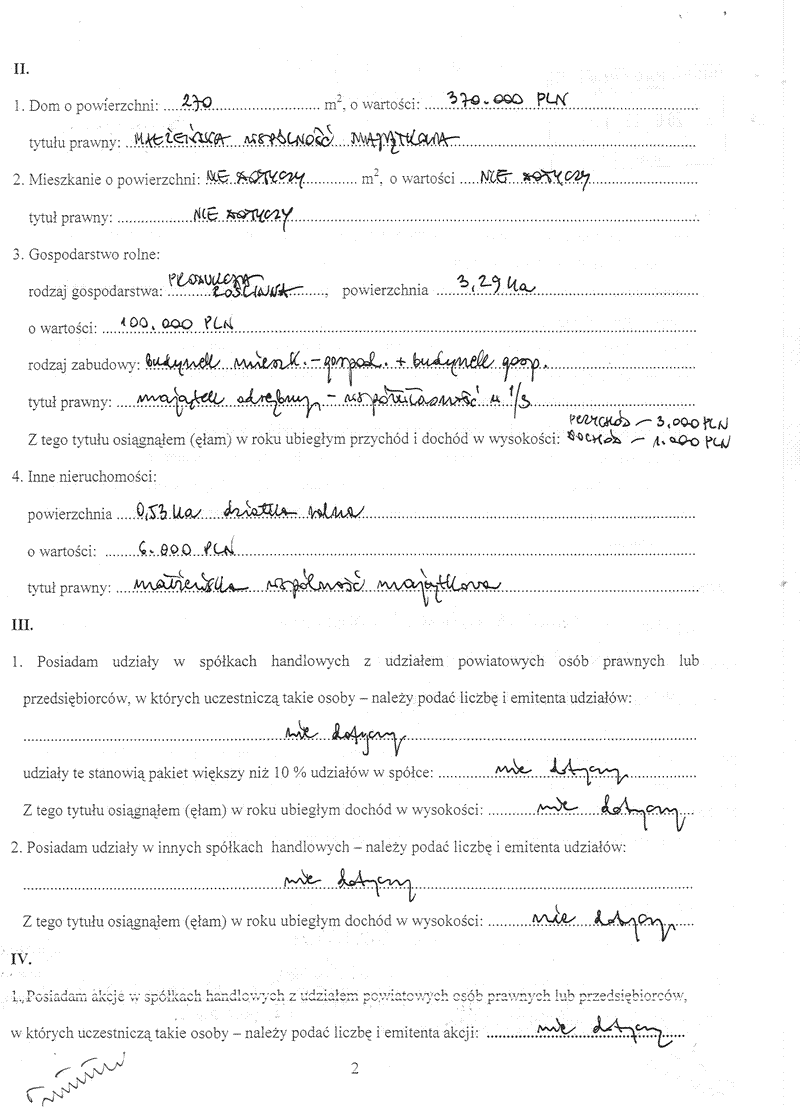 II.
1. Dom o powierzchni: ....270.... m², o wartości: ....370.000 PLN....
tytułu prawny: ..MAŁŻEŃSKA WSPÓLNOŚĆ MAJĄTKOWA....
2. Mieszkanie o powierzchni: NIE DOTYCZY.... m², o wartości ....NIE DOTYCZY....
tytuł prawny: ....NIE DOTYCZY....
3. Gospodarstwo rolne:
rodzaj gospodarstwa: PRODUKCJA ROŚLINNA...., powierzchnia ....3,29 ha....
o wartości: ....100.000 PLN....
rodzaj zabudowy: budynek mieszk. - gospod. + budynek gosp.
tytuł prawny: ....majątek odrębny - współwłasność w 1/3
Z tego tytułu osiągnąłem (ęłam) w roku ubiegłym przychód i dochód w wysokości: PRZYCHÓD – 3.000 PLN
DOCHÓD – 1.000 PLN
4. Inne nieruchomości:
powierzchnia ....0,53 ha działka rolna....
o wartości: ....6.000 PLN....
tytuł prawny: ....małżeńska wspólność majątkowa....
III.
1. Posiadam udziały w spółkach handlowych z udziałem powiatowych osób prawnych lub
przedsiębiorców, w których uczestniczą takie osoby – należy podać liczbę i emitenta udziałów:
....nie dotyczy....
udziały te stanowią pakiet większy niż 10 % udziałów w spółce: ....nie dotyczy....
Z tego tytułu osiągnąłem (ęłam) w roku ubiegłym dochód w wysokości: ....nie dotyczy....
2. Posiadam udziały w innych spółkach handlowych – należy podać liczbę i emitenta udziałów:
....nie dotyczy....
Z tego tytułu osiągnąłem (ęłam) w roku ubiegłym dochód w wysokości: ....nie dotyczy....
IV.
1. Posiadam akcje w spółkach handlowych z udziałem powiatowych osób prawnych lub przedsiębiorców,
w których uczestniczą takie osoby – należy podać liczbę i emitenta akcji: ....nie dotyczy....
2